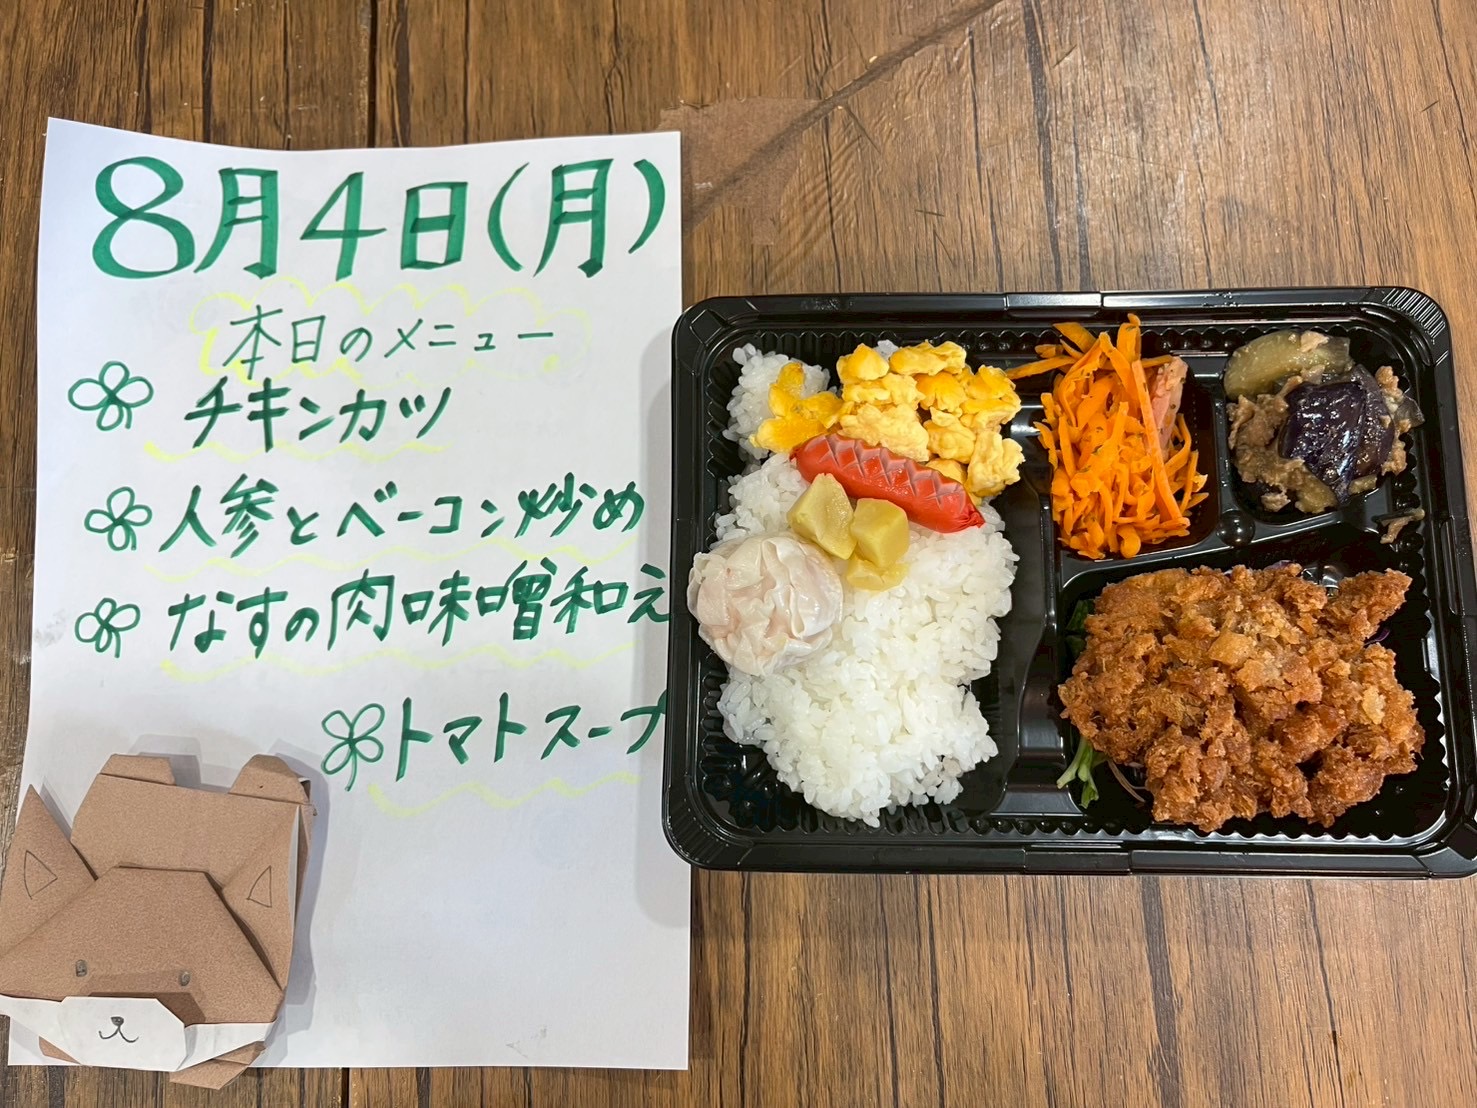 8月4日(月)
本日のメニュー
チキンカツ
人参とベーコン炒め
なすの肉味噌和え
トマトスープ